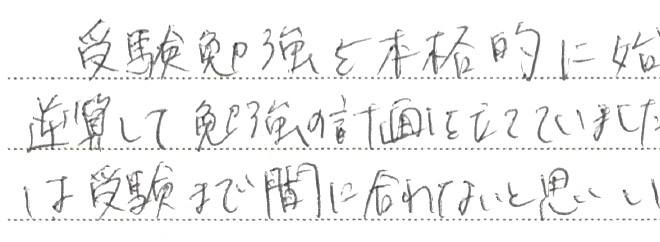 受験勉強を本格的に始
逆算して勉強の計画をたてていました
は受験まで間に合わないと思い